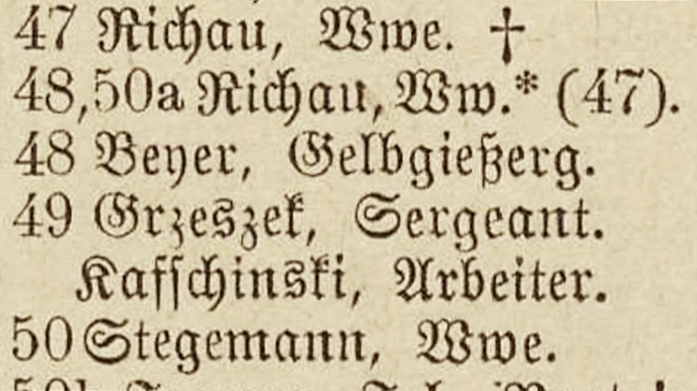 47 Richau, Wwe. †
48,50a Richau, Ww.* (47).
48 Beyer, Gelbgießerg.
49 Grzeszek, Sergeant.
Kafschinski, Arbeiter.
50 Stegemann, Wwe.